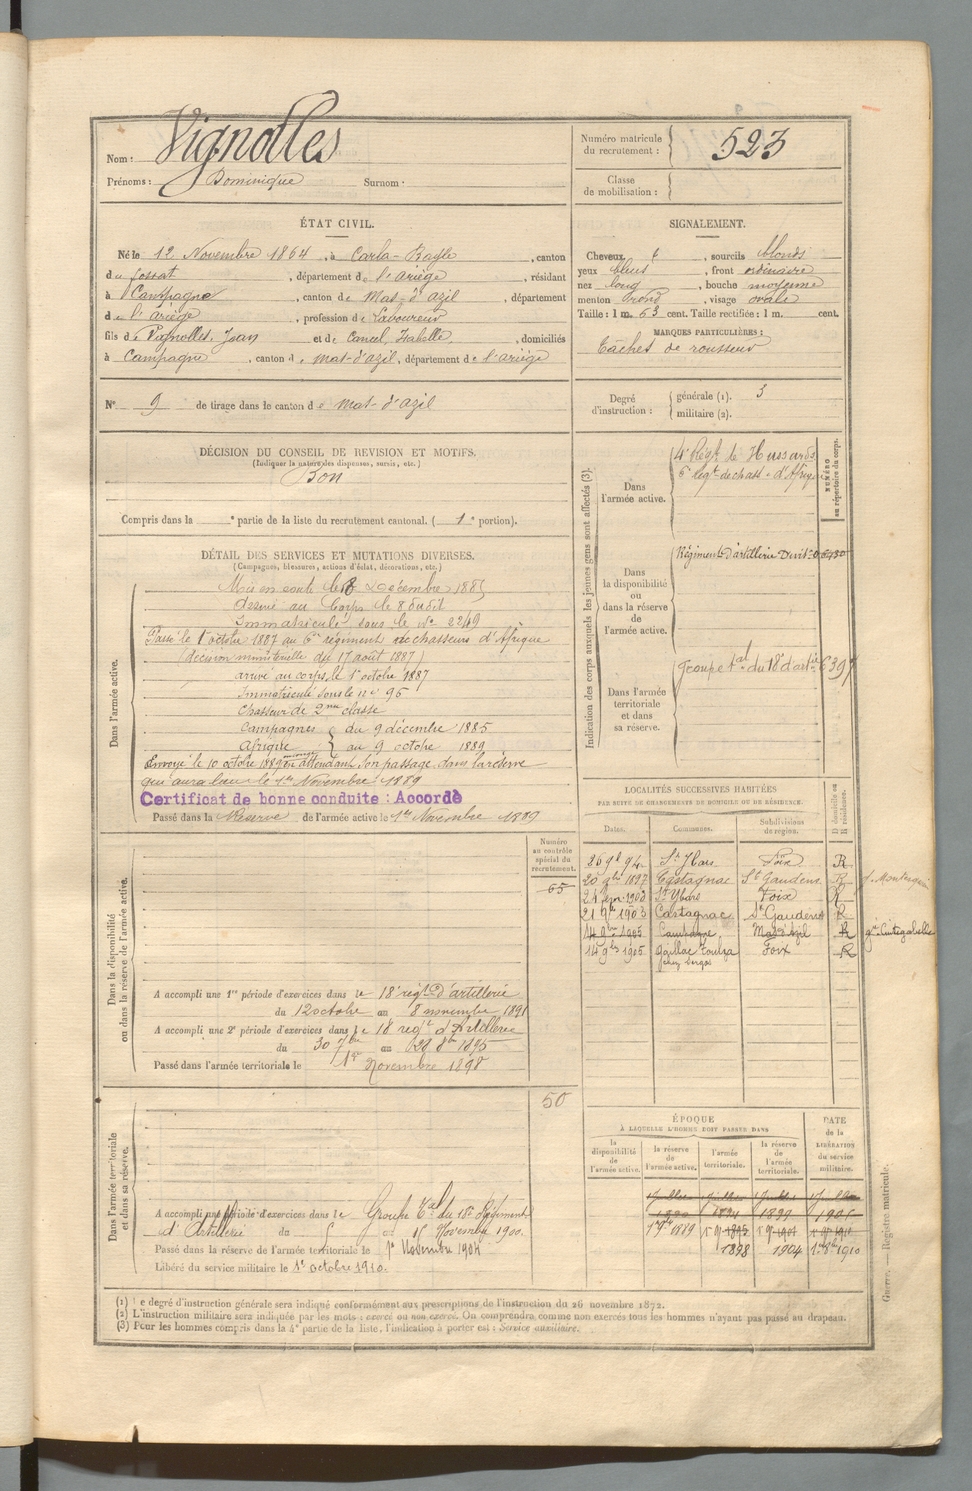 Nom : Vignolles
Prénoms : Dominique Surnom :
Numéro matricule du recrutement : 523
Classe de mobilisation :
ÉTAT CIVIL.
Né le 12 Novembre 1864, à Carla-Bayle, canton
de fossat, département de l'ariège, résidant
à Campagne, canton de Mas-d'azil, département
de l'ariège, profession de Laboureur
fils de Vignolles, Jean et de Cancel, Isabelle, domiciliés
à Campagne, canton de mas-d'azil, département de l'ariège
N° 9 de tirage dans le canton de mas-d'azil
SIGNALEMENT.
Cheveux, sourcils blonds
yeux bleus, front ordinaire
nez long, bouche moyenne
menton rond, visage ovale
Taille : 1 m. 63 cent. Taille rectifiée : 1 m. cent.
MARQUES PARTICULIÈRES :
Tâches de rousseur
Degré d'instruction : générale (1). 3
militaire (2).
DÉCISION DU CONSEIL DE REVISION ET MOTIFS.
(Indiquer la nature des dispenses, sursis, etc.)
Bon
Compris dans la e partie de la liste du recrutement cantonal. (1e portion).
DÉTAIL DES SERVICES ET MUTATIONS DIVERSES.
(Campagnes, blessures, actions d'éclat, décorations, etc.)
Dans l'armée active.
Mis en route le 8 Décembre 1885
Arrivé au Corps le 8 dudit
Immatriculé sous le N° 2249
Passé le 1er octobre 1887 au 6e régiment de chasseurs d'Afrique
(décision ministérielle du 17 août 1887)
arrivé au corps le 1er octobre 1887
Immatriculé sous le n° 96
Chasseur de 2me classe
Campagnes du 9 décembre 1885
Afrique au 9 octobre 1889
Envoyé le 10 octobre 1889 en attendant son passage dans la réserve
qui aura lieu le 1er Novembre 1889
Certificat de bonne conduite : Accordé
Passé dans la Réserve de l'armée active le 1er Novembre 1889
Indication des corps auxquels les jeunes gens sont affectés (3).
NUMÉRO au répertoire du corps.
Dans l'armée active.
4e Régt de Hussards
6e Régt de chass. d'Afriq
Dans la disponibilité ou dans la réserve de l'armée active.
Régiment d'artillerie
Dans l'armée territoriale et dans sa réserve.
Groupe tal du 18e d'artie 6397
LOCALITÉS SUCCESSIVES HABITÉES
PAR SUITE DE CHANGEMENTS DE DOMICILE OU DE RÉSIDENCE.
Dates. Communes. Subdivisions de région. D domicile ou R résidence.
26 9b 94 St Ybars Foix R
20 9bre 1897 Castagnac St Gaudens R
St Ybars Foix R
21 9bre 1903 Castagnac St Gaudens R
14 9bre 1905 Campagne, Mas d'Azil R gie Cintegabelle
14 9bre 1905 Gaillac Toulza Foix R
Dans la disponibilité ou dans la réserve de l'armée active.
Numéro au contrôle spécial du recrutement.
65
A accompli une 1re période d'exercices dans le 18e régt d'artillerie
du 12 octobre au 8 novembre 1891
A accompli une 2e période d'exercices dans le 18e regt d'Artillerie
du 30 7bre au 28 8bre 1895
Passé dans l'armée territoriale le 1er Novembre 1898
Dans l'armée territoriale et dans sa réserve.
50
A accompli une période d'exercices dans le Groupe tal du 18e Régiment
d'Artillerie du 5 au 15 Novembre 1900.
Passé dans la réserve de l'armée territoriale le 1er Novembre 1904
Libéré du service militaire le 1er octobre 1910.
ÉPOQUE
À LAQUELLE L'HOMME DOIT PASSER DANS
DATE de la LIBÉRATION du service militaire.
la disponibilité de l'armée active. la réserve de l'armée active. l'armée territoriale. la réserve de l'armée territoriale.
1889 1895 1901 1910
1898 1904 1910
Guerre. — Registre matricule.
(1) Le degré d'instruction générale sera indiqué conformément aux prescriptions de l'instruction du 26 novembre 1872.
(2) L'instruction militaire sera indiquée par les mots : exercé ou non exercé. On comprendra comme non exercés tous les hommes n'ayant pas passé au drapeau.
(3) Pour les hommes compris dans la 4e partie de la liste, l'indication à porter est : Service auxiliaire.